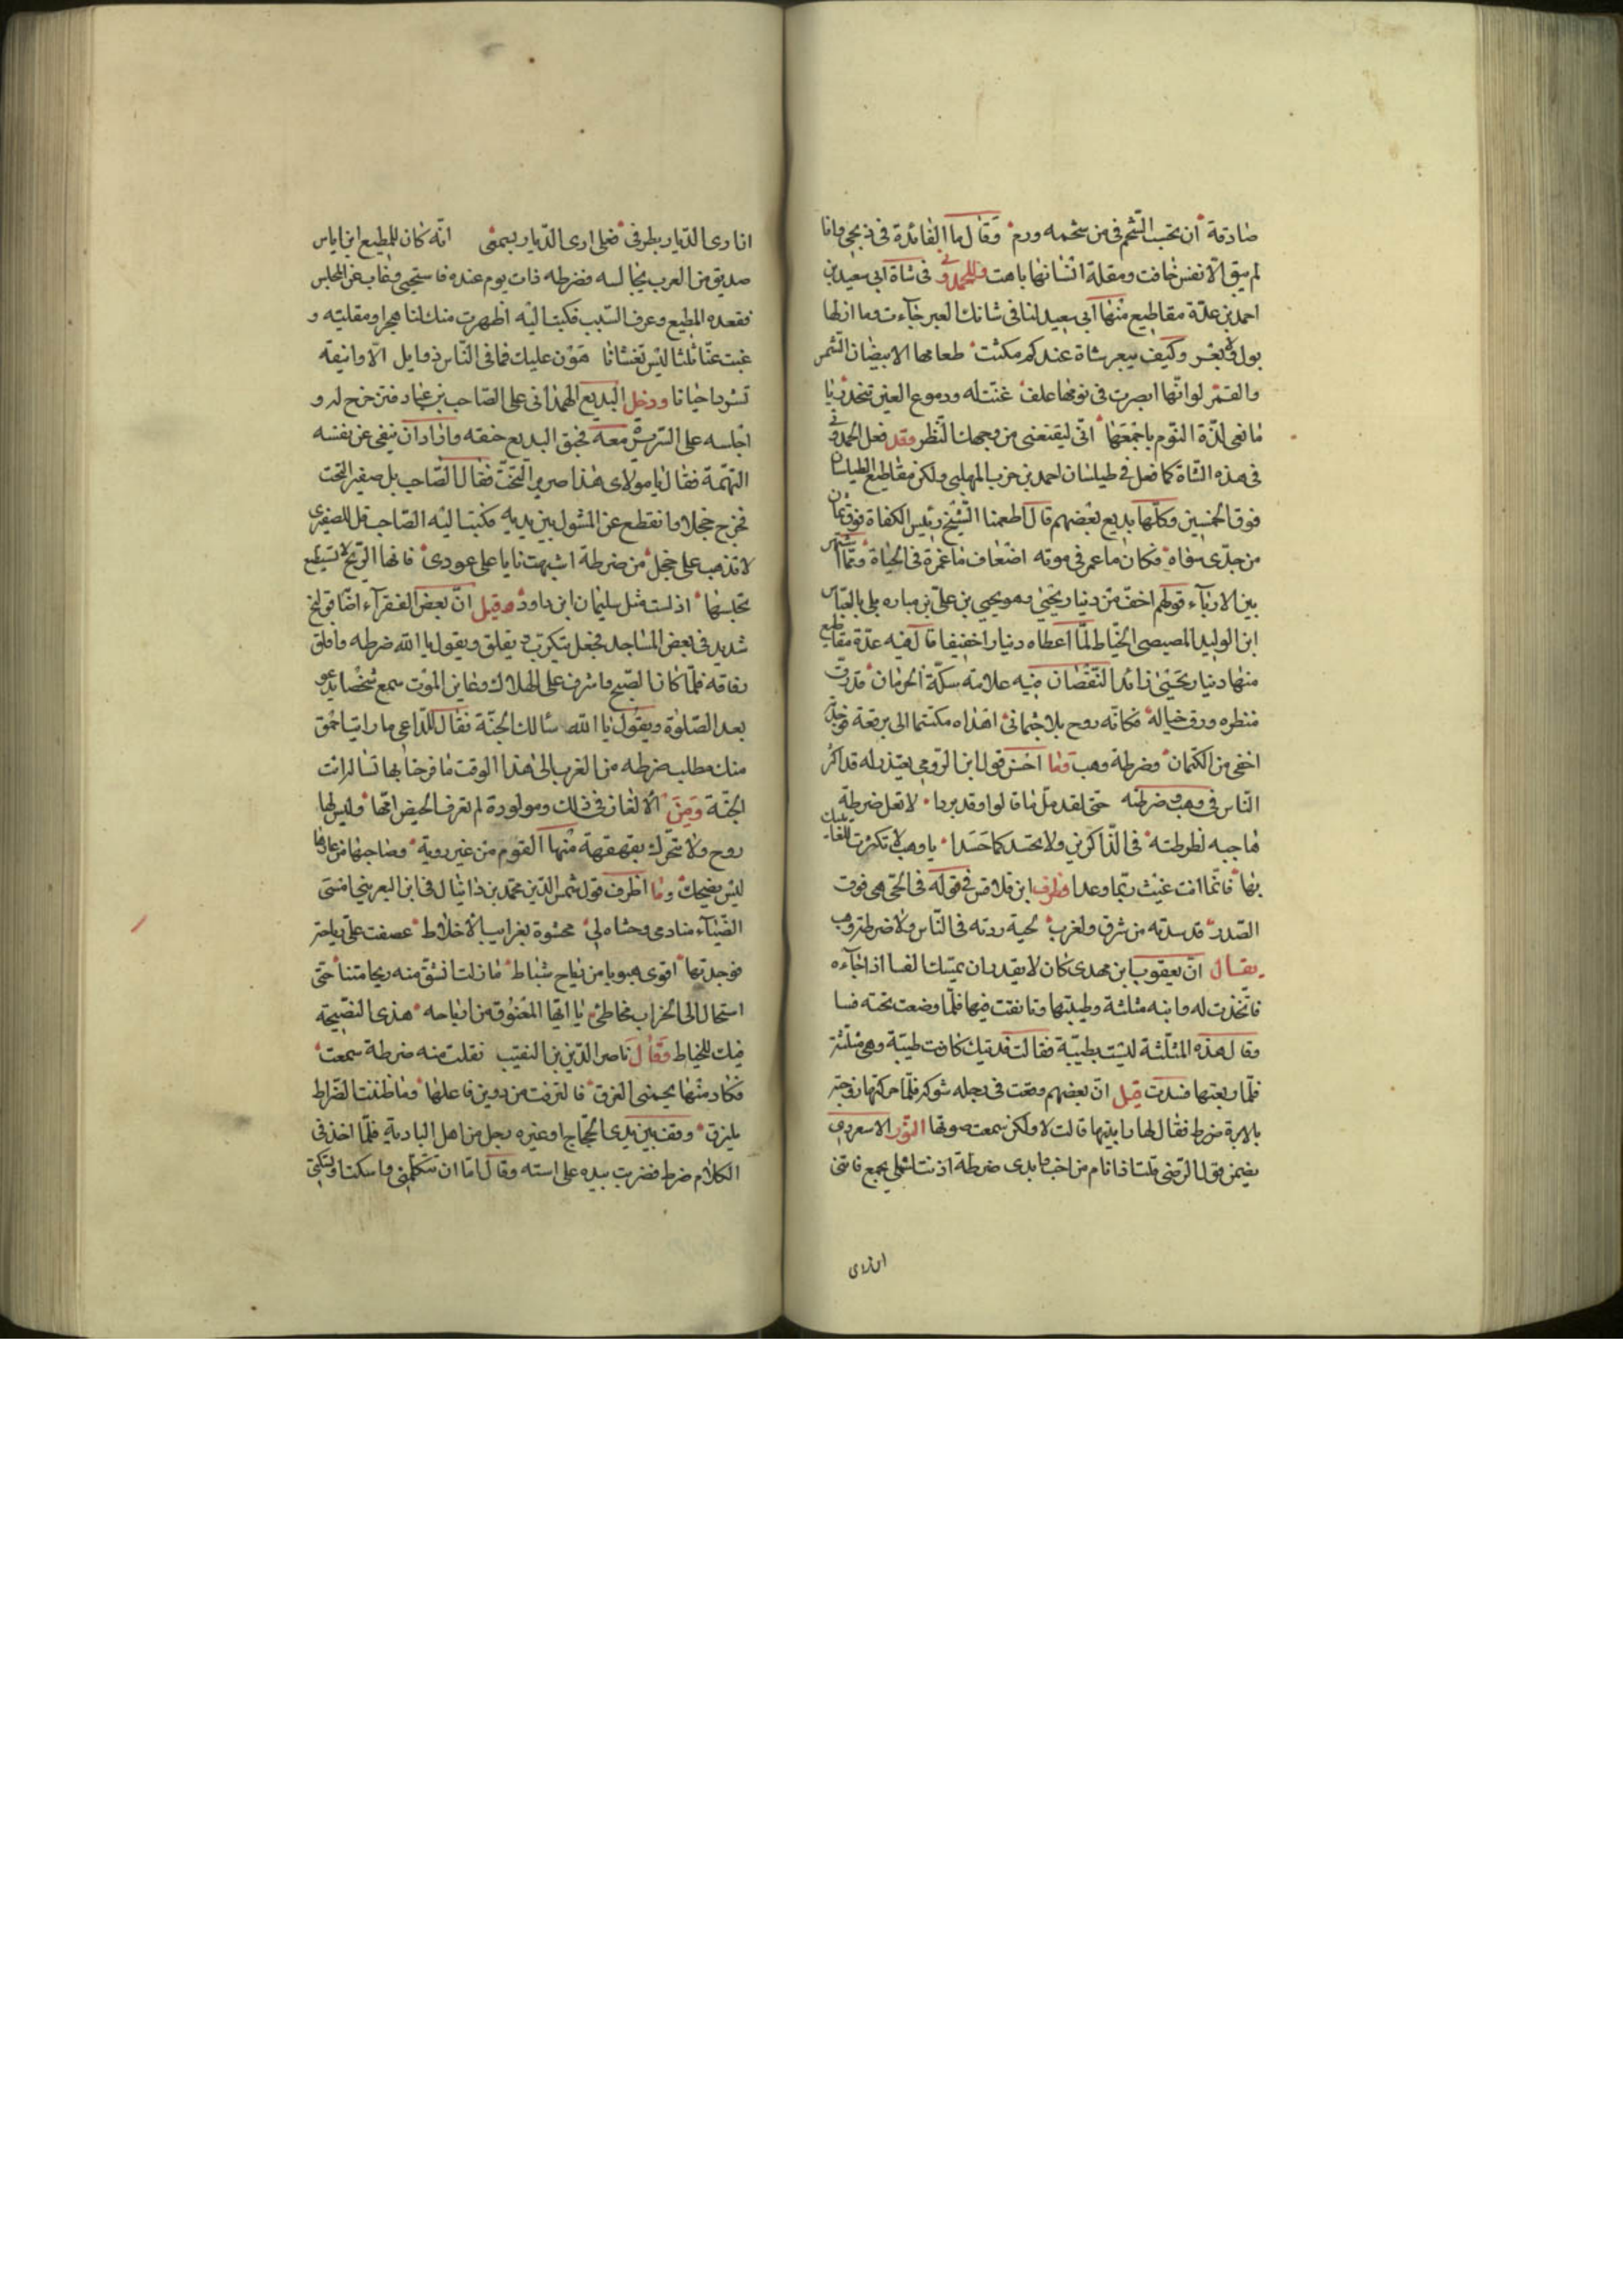 صادقة أن تحسب الشحم فى من شحمه ورم وقال ما الفائدة فى ذبحى وانا
لم يبق الا نفس خافت ومقلة انسانها باهت وللحمدوى فى شاة ابى سعيد بن
احمد بن عدة مقاطيع منها أبى سعيد لنا فى شاتك العبر جاءت وما ان لها
بول ولا بعر وكيف يبعر شاة عندكم مكثت طعامها الابيضان الشمس
والقمر لو انها ابصرت فى نومها علفا غنت له ودموع العين تنحدر يا
مانعى لذة النوم باجمعها انى ليقنعنى من وجهك النظر وقد فعل الحمدوى
فى هذه الشاة كما فعل فى طيلسان احمد بن حرب المهلبى ولكن مقاطيع الطيلسان
فوق الخمسين وكلها بديع بعضهم قال اطعمنا الشيخ رئيس الكفاة
من جدى فكان ما عمر فى موته اضعاف ما عمره فى الحياة ومما اشتهر
بين الادباء قولهم اخف من دينار يحيى وهو يحيى بن على بن
ابن الوليد المصيصى الخياط لما أعطاه دينارا خفيفا قال فيه عدة مقاطيع
منها دينار يحيى زائد النقصان فيه علامة سكة الحرمان قد رق
منظره ورق خياله فكانه روح بلا جثمان اهداه مكتتما الى برقعة فوجدته
اخفى من الكتمان وضرطة وهب وما احسن قول ابن الرومى يعتذر له قد اكثر
الناس فى وهب وضرطته حتى لقد مل ما قالوا وقد بردا لا تعل ضرطة
هاجيه لطوطته فى الذاكرين ولا يحسد كما حسدا يا وهب لا تكترث للعائبيك
بها فانما انت غيث ربما وعدا وظرف ابن قلاقس فى قوله فى لحى هى فوق
الصدر قد سدته من شرق ولغرب لحية ردته فى الناس ولا ضرطة وهب
يقال ان يعقوب ابن مهدى كان لا يقدر ان يمسك الفسا اذا جاءه
فاتخذت له داينه مثلثة وطيبتها وتانقت فيها فلما وضعت تحته فسا
وقال هذه المثلثة ليست بطيبة فقالت فديتك كانت طيبة وهى مثلثة
فلما ربعتها فسدت قيل ان بعضهم وقعت فى رجله شوكة فلما حركتها زوجته
بالابرة ضرط فقال لها رايتها قالت لا ولكن سمعت صوتها النور الاسعردى
يضمن قول الرضى قلت اذ نام من احب وابدى ضرطة اذنت لشملى بجمع فاتنى
ان ارى
انا رى الديار بطرفى فعلى ارى الديار بسمعى انه كان للمطيع ابن اياس
صديق من العرب يجالسه فضرطه ذات يوم عنده فاستحيى وغاب عن المجلس
فقعده المطيع وعرف السبب فكتب اليه اظهرت منك لنا هجرا ومقلية و
غبت عنا ثلثا ليس تغشانا هون عليك فما فى الناس ذو ابل الا واينقه
تشردن احيانا ودخل البديع الهمذانى على الصاحب بن عباد فتزحزح له و
اجلسه على السرير معه فحبق البديع حنقه واراد ان ينفى عن نفسه
التهمة فقال يا مولاى هذا صرير التخت فقال الصاحب بل صفير التحت
فخرج خجلا وانقطع عن المثول بين يديه فكتب اليه الصاحب قل للصفيرى
لا تذهب على خجل من ضرطة اشبهت نايا على عودى فانها الريح لا تسطيع
تحبسها اذ لست مثل سليمان ابن داود وقيل ان بعض الفقراء اضافى نفخ
شديد فى بعض المساجد فجعل يتكرب ويقلق ويقول يا الله ضرطه واقلق
رفاقه فلما كان الصبح واشرف على الهلاك وعاين الموت سمع شخصا يدعو
بعد الصلوة ويقول يا الله سالك الجنة فقال للداعى ما رايت احمق
منك مطلب ضرطه من الغرب الى هذا الوقت ما فرحنا بها تسال انت
الجنة ومن الالغاز فى ذلك ومولودة لم تعرف الحيض امها وليس لها
روح ولا تتحرك يقهقه منها القوم من غير روية وصاحبها من عارها
ليس يضحك وما اظرف قول شمس الدين محمد بن دانيال فى ابن البعرينى امسى
الضياء منادمى وحشاه لى محشوة بغرائب الاخلاط عصفت على رياحه
فوجدتها اقوى هبوبا من رياح شباط ما زلت انشق منه ريحا منتنا حتى
استحال الى الخراب مخاطى يا ايها المعنوق من ارياحه هذى النصيحة
فيك للخياط وقال ناصر الدين بن النقيب نفلت منه ضرطة سمعت
فكاد منها يحيى الغرق فالتزقت من دوين فاعلها وما ظننت الضراط
يلزق ووقف بين يدى الحجاج او غيره رجل من اهل البادية فلما اخذ فى
الكلام ضرط فضرب بيده على استه وقال اما ان تتكلمى واسكت او تسكتى